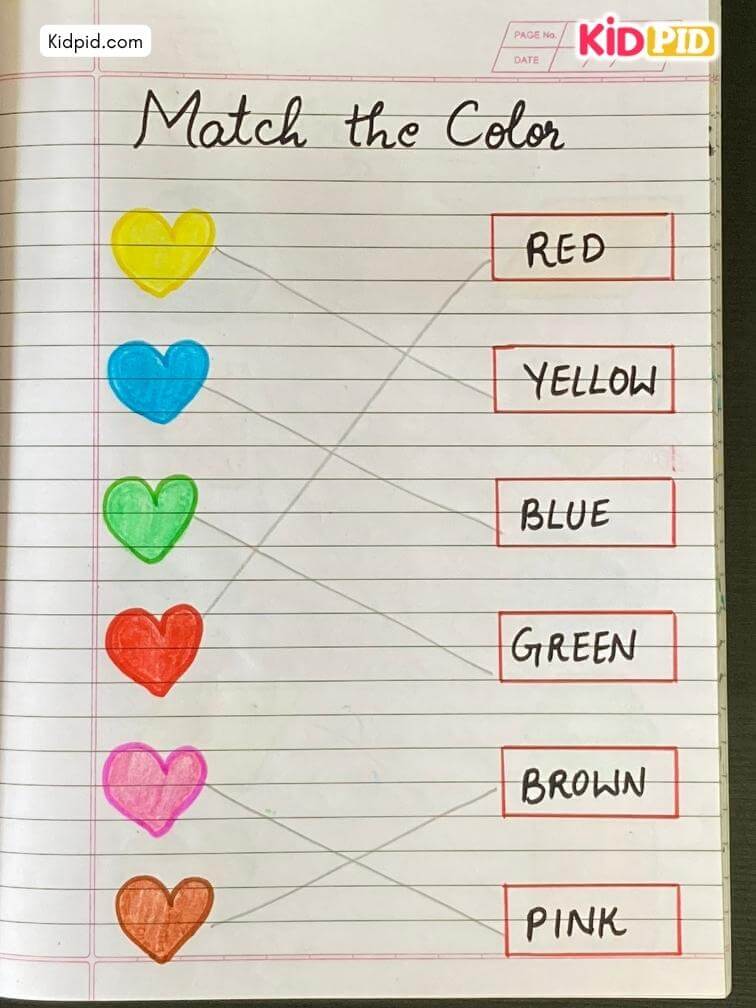 Kidpid.com
PAGE No.
DATE
KIDPID
Match the Color
RED
YELLOW
BLUE
GREEN
BROWN
PINK